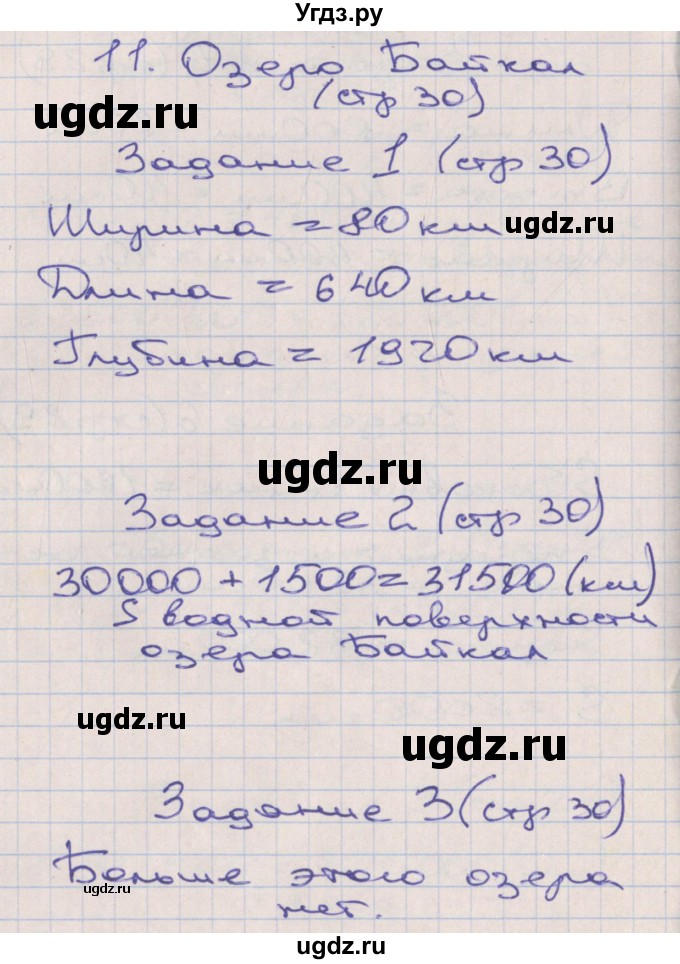 Угдз.ру
11. Озеро Байкал
(стр 30)
ugdz.ru
Задание 1 (стр 30)
Ширина = 80 км ugdz.ru
Длина = 640 км
Глубина = 1920 км
ugdz.ru
Задание 2 (стр 30)
30000 + 1500 = 31500 (км)
S водной поверхности
озера Байкал
ugdz.ru
ugdz.ru
Задание 3 (стр 30)
Больше этого озера
ugdz.ru
нет.
ugdz.ru